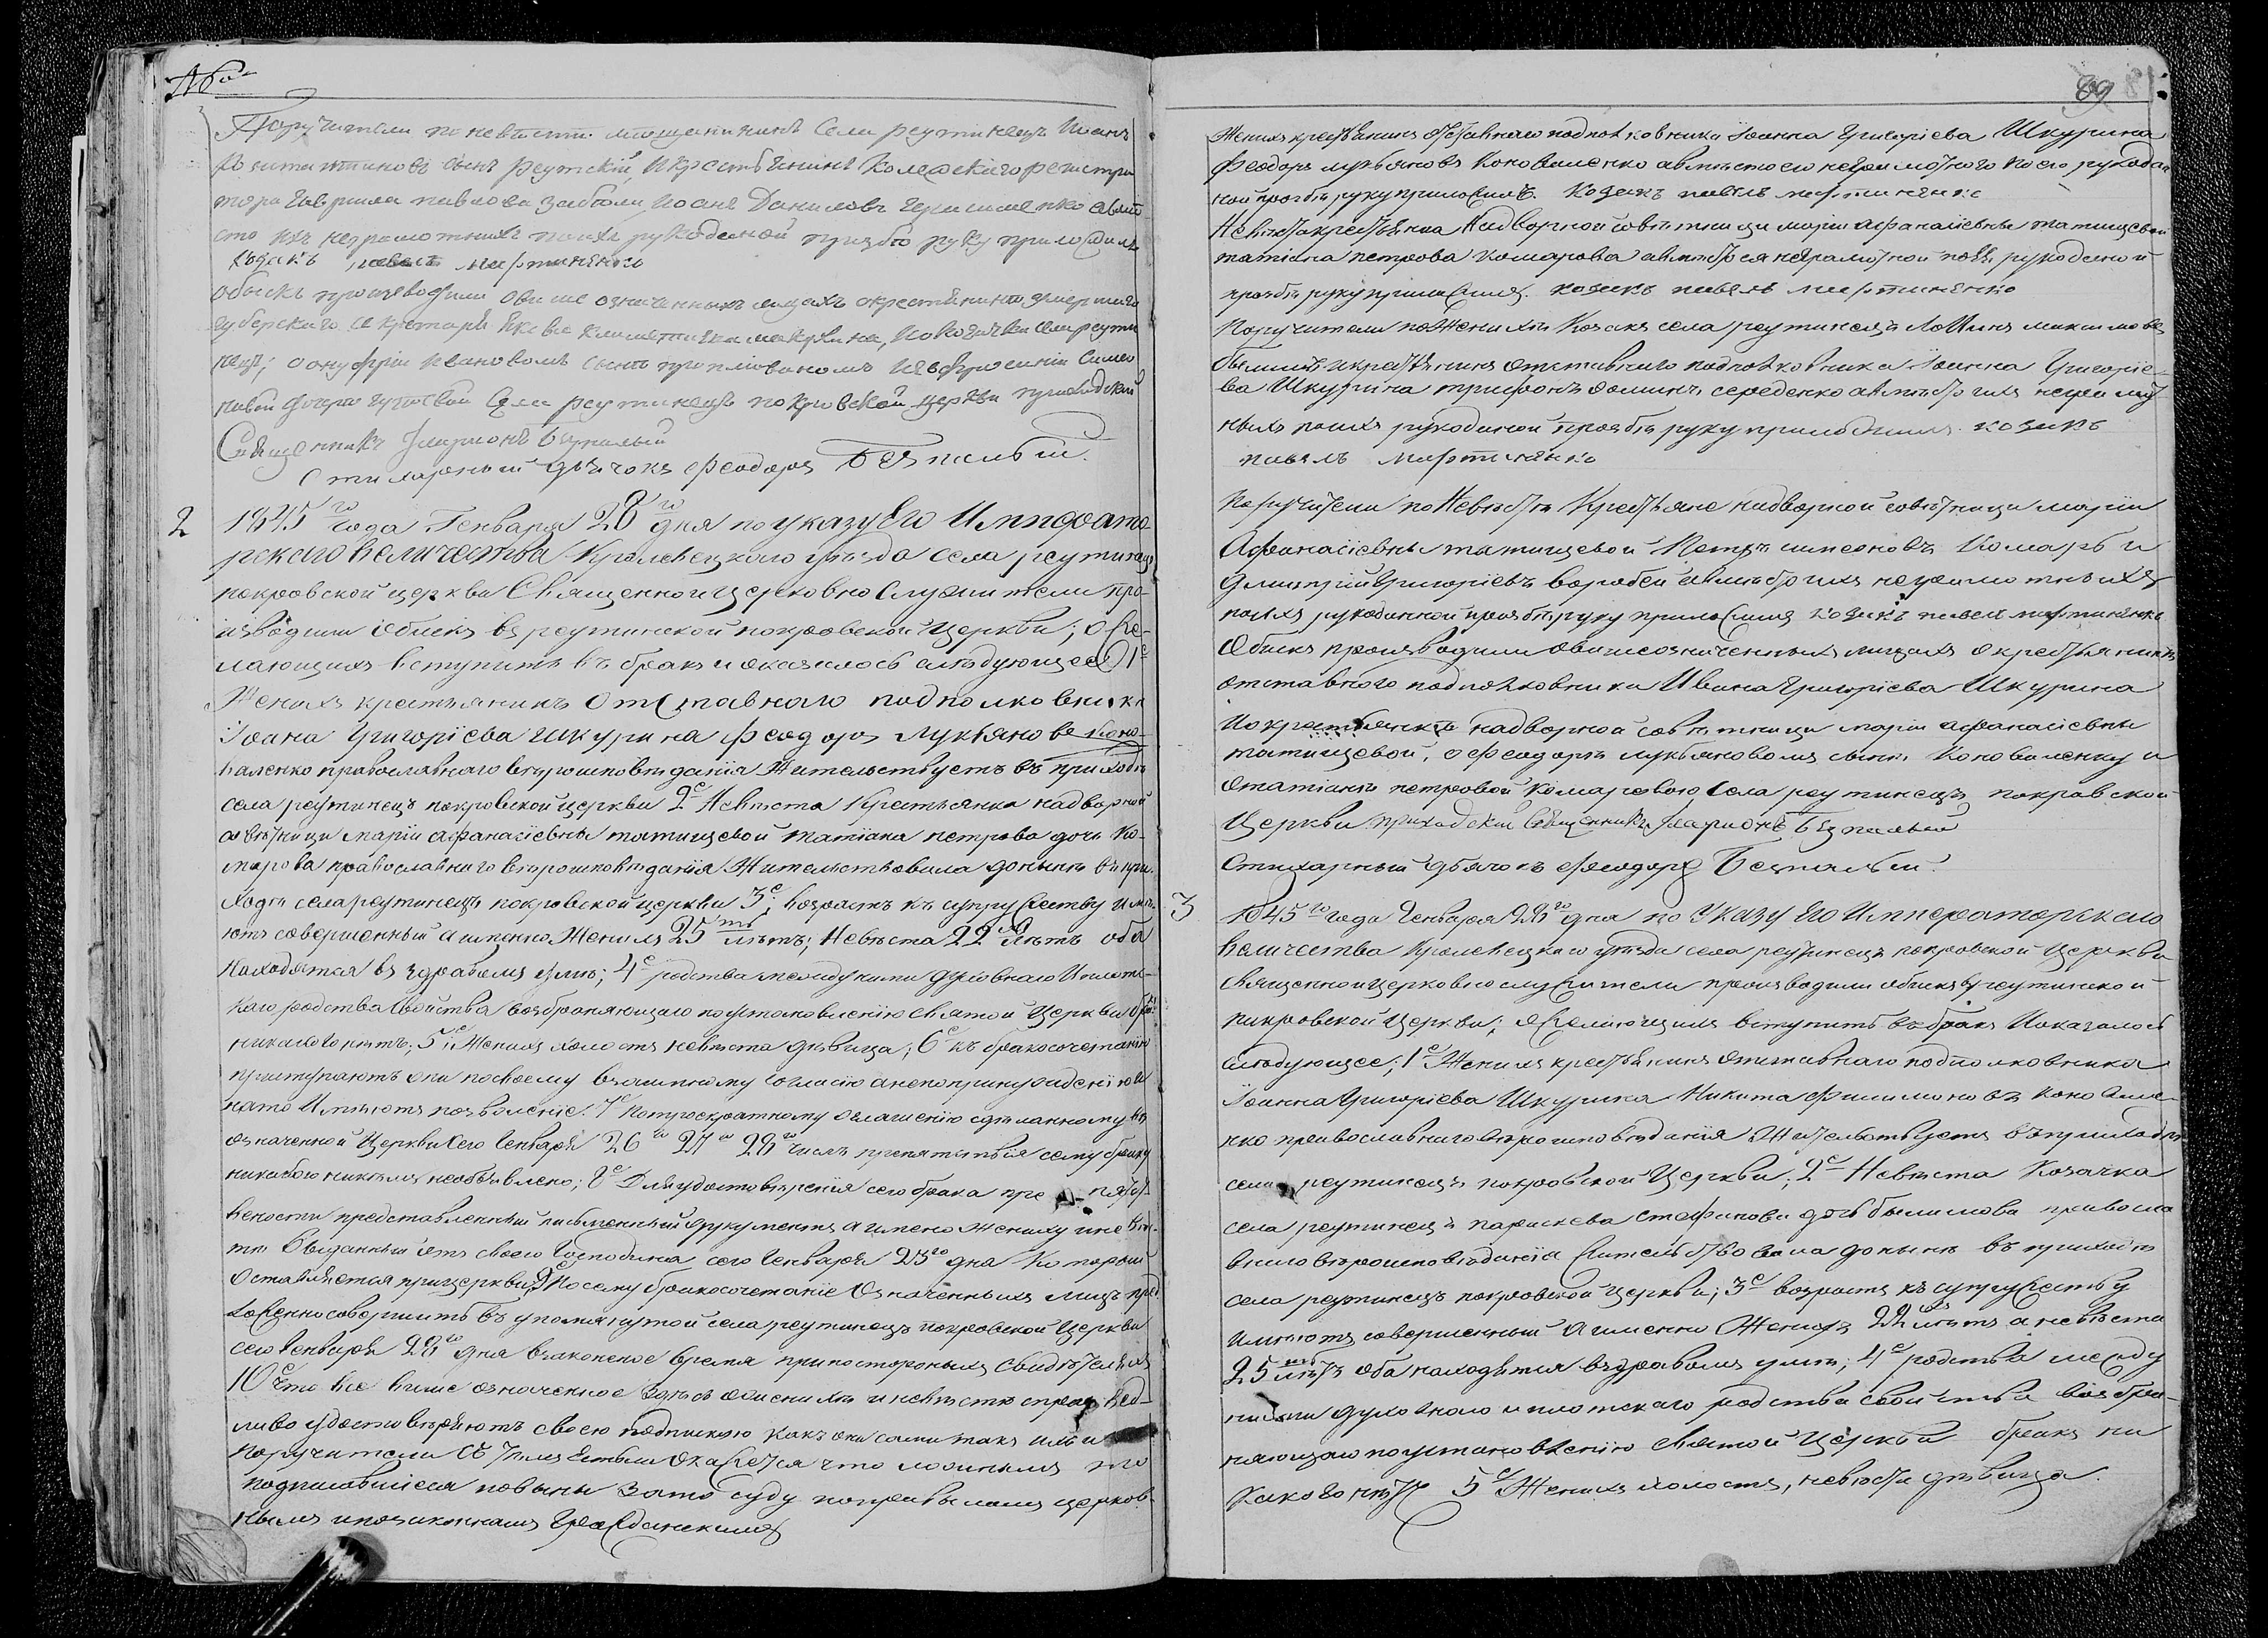 №
Поручители по невѣсти мещининъ Села реутинецъ Иоанъ
Константиновъ сынъ Реутскій, Икрестьянинъ Колежскаго регистра
тора Гаврила павлова забѣли, Иоанъ Даниловъ Герасименко авмѣ
сто ихъ неграмотнихъ поихъ рукоданой прозбѣ руку приложилъ
козакъ павелъ мартиненко
обыскъ производили овише означенныхъ лицахъ окрестянинѣ умершаго
губерскаго секретаря
нецъ; оонуфріи Ивановомъ сынѣ Иевфросиніи Симео
новой дочери Села реутинецъ покровской церкви приходскій
Священникъ Іларионъ Безпалый
Стихарный дьячокъ Феодоръ Безпалый.
2 1845го года Генваря 28го дня по указу Его Императо-
рскаго величества Кролевецкого уѣзда села реутинецъ
покровской церкви Священноицерковно Служители про-
изводили обискъ въ реутинской покровской церкви; о же-
лающихъ вступить въ бракъ иоказалось слѣдующее 1е
Женихъ крестьянинъ отставного подполковника
Іоана Григоріева Шкурина Феодоръ Лукьяновъ Коно-
валенко православнаго вѣроисповѣданія Жительствуетъ въ приходѣ
села реутинецъ покровской церкви 2е Невѣста Крестьянка надворной
совѣтници маріи афанасіевны татищевой татіана петрова дочь Ко-
марова православнаго вѣроисповѣданія Жительствовала донынѣ въ при-
ходѣ села реутинецъ покровской церкви 3е, возрастъ къ супружеству имѣ-
ютъ совершенный аименно Женихъ 25ть лѣтъ; Невѣста 22 лѣтъ оба
находятся въ здравомъ умѣ; 4е родства между ними духовнаго Иплотс-
каго родства свойства возбраняющаго поустановленію святой Церкви бракъ
никакого нѣтъ; 5е, Женихъ холостъ невѣста дѣвица; 6е къ бракосочетанію
приступаютъ они посвоему взаимному согласію анепопринужденію и
нато имѣютъ позволеніе. 7е Потроекратному оглашенію сдѣланному въ
означенной Церкви сего Генваря 26го 27го 28го числъ препятствія сему браку
никакого никѣмъ необъявлено; 8е Дляудостовѣренія сего брака пре пятст
венности представленный письменный документъ аимено Жениху иневѣс-
тѣ выданный отъ своего Господина сего Генваря 23го дня Которой
оставляется прицеркви, 9 Посему бракосочетаніе означенныхъ лицъ пред
положенно совершить въ упомянутой села реутинецъ покровской Церкви
сего Генваря 28го дня взаконное время припостороныхъ свидѣтеляхъ
10е что все више означенное здѣсь оженихѣ иневѣстѣ справед-
ливо удостовѣряютъ своею подпискою какъ они сами такъ илъи
Поручители съ тѣмъ естьли окажется что ложнымъ то
подписавшіеся повинны зато суду поправиламъ церков-
нымъ ипозаконнамъ Гражданскимъ
89
Женихъ крестьянинъ отставнаго подполковника Іоанна Григоріева Шкурина
Феодоръ лукьяновъ Коноваленко авмѣстоего неграмотного поего рукодан
ной прозбѣ руку приложилъ. Козакъ павелъ мартиненко
Невѣстакрестьянка Надворной совѣтници маріи афанасіевны татищевой
татіана петрова комарова авмѣстоея неграмотной поея рукоданой
прозбѣ руку приложилъ. козакъ павелъ мартиненко
Поручители поЖенихѣ Козакъ села реутинецъ Логинъ максимовъ
былимъ икрестьянинъ отставнаго подполковника Іоанна Григоріе-
ва Шкурина трифонъ фоминъ середенко авмѣсто ихъ неграмот
ныхъ поихъ рукоданой прозбѣ руку приложилъ козакъ
павелъ мартиненко
Поручители поНевѣстѣ Крестьяне надворной совѣтници маріи
Афанасіевны татищевой Петръ симеоновъ Комаръ и
Дмитрій Григоріевъ воробей авмѣсто ихъ неграмотныхъ
поихъ рукоданной прозбѣ руку приложилъ козакъ павелъ мартиненко
Обискъ производили овишеозначенныхъ лицахъ окрестьянинѣ
отставного подполковника Ивана Григоріева Шкурина
Иокрестьянкѣ надворной совѣтници маріи афанасіевны
татищевой, оФеодорѣ лукьяновомъ сынѣ Коноваленку и
отатіанѣ петровой комаровою села реутинецъ покровской
Церкви приходскій священникъ Іларионъ Безпалый
Стихарный дьячокъ Феодоръ Безпалый.
3 1845го года Генваря 28го дня по Указу Его Императорскаго
Величества Кролевецкаго уѣзда села реутинецъ покровской Церкви
Священноицерковнослужители производили обискъ въ реутинской
покровской Церкви; ожелающихъ вступить въ бракъ Иоказалось
слѣдующее; 1е Женихъ крестьянинъ отставнаго подполковника
Іоанна Григоріева Шкурина Никита Филимоновъ Коновале-
нко православнаго вѣроисповѣданія Жительствуетъ въ приходѣ
села реутинецъ покровской Церкви; 2е Невѣста Козачка
села реутинецъ параскева Стефанова дочь былимова правосла
внаго вѣроисповѣданія Жительствовала донынѣ въ приходѣ
села реутинецъ покровской церкви; 3е возрастъ къ супружеству
имѣютъ совершенный аименно Женихъ 22 лѣтъ а невѣста
25ть лѣтъ оба находятся вздравомъ умѣ; 4е родства между
ними духовнаго иплотскаго родства свойства возбра-
няющаго поустановленію святой Церкви бракъ ни
какого нѣтъ 5е Женихъ холостъ, невѣста дѣвица.